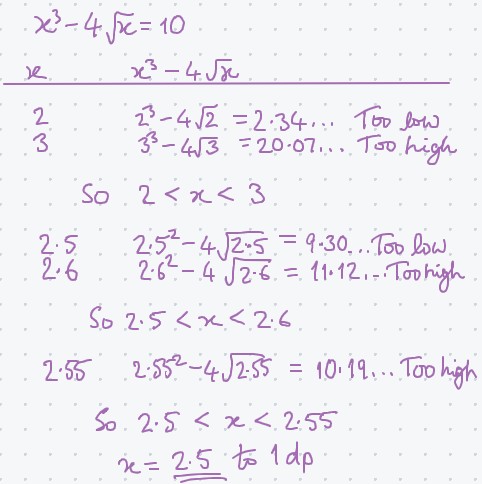 x³ - 4√x = 10
x x³ - 4√x
2 2³ - 4√2 = 2.34... Too low
3 3³ - 4√3 = 20.07... Too high
So 2 < x < 3
2.5 2.5² - 4√2.5 = 9.30... Too low
2.6 2.6² - 4√2.6 = 11.12... Too high
So 2.5 < x < 2.6
2.55 2.55² - 4√2.55 = 10.19... Too high
So 2.5 < x < 2.55
x = 2.5 to 1 dp